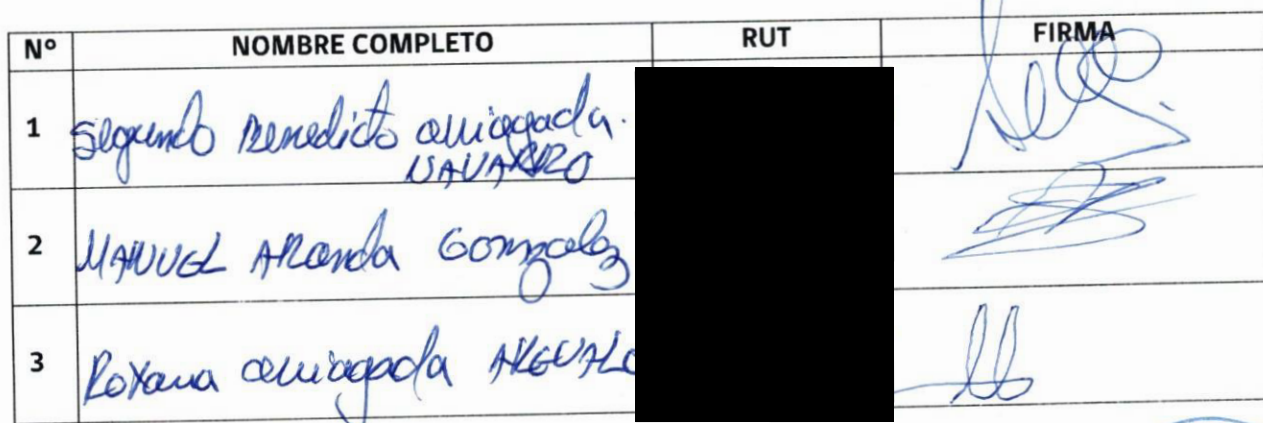 Nº NOMBRE COMPLETO RUT FIRMA
1 Segundo Benedicto arriagada.
NAVARRO
2 MANUEL ARanda Gonzalez
3 Roxana arriagada